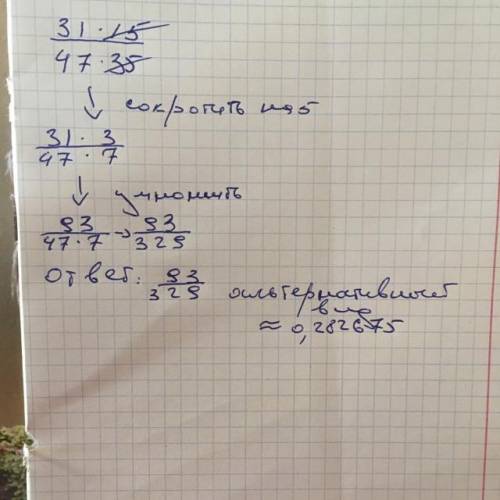 31 · 15
47 · 35
↓ сократить на 5
31 · 3
47 · 7
↓ умножить
93
47 · 7 → 93
329
ответ: 93
329 альтернативный
вид
≈ 0,282675